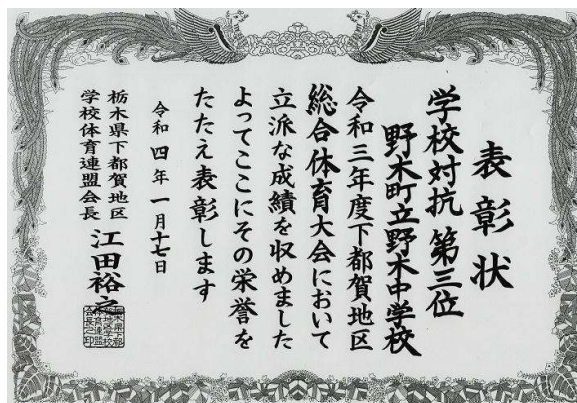 表彰状
学校対抗 第三位
野木町立野木中学校
令和三年度下都賀地区
総合体育大会において
立派な成績を収めました
よってここにその栄誉を
たたえ表彰します
令和四年一月十七日
栃木県下都賀地区
学校体育連盟会長 江田裕之